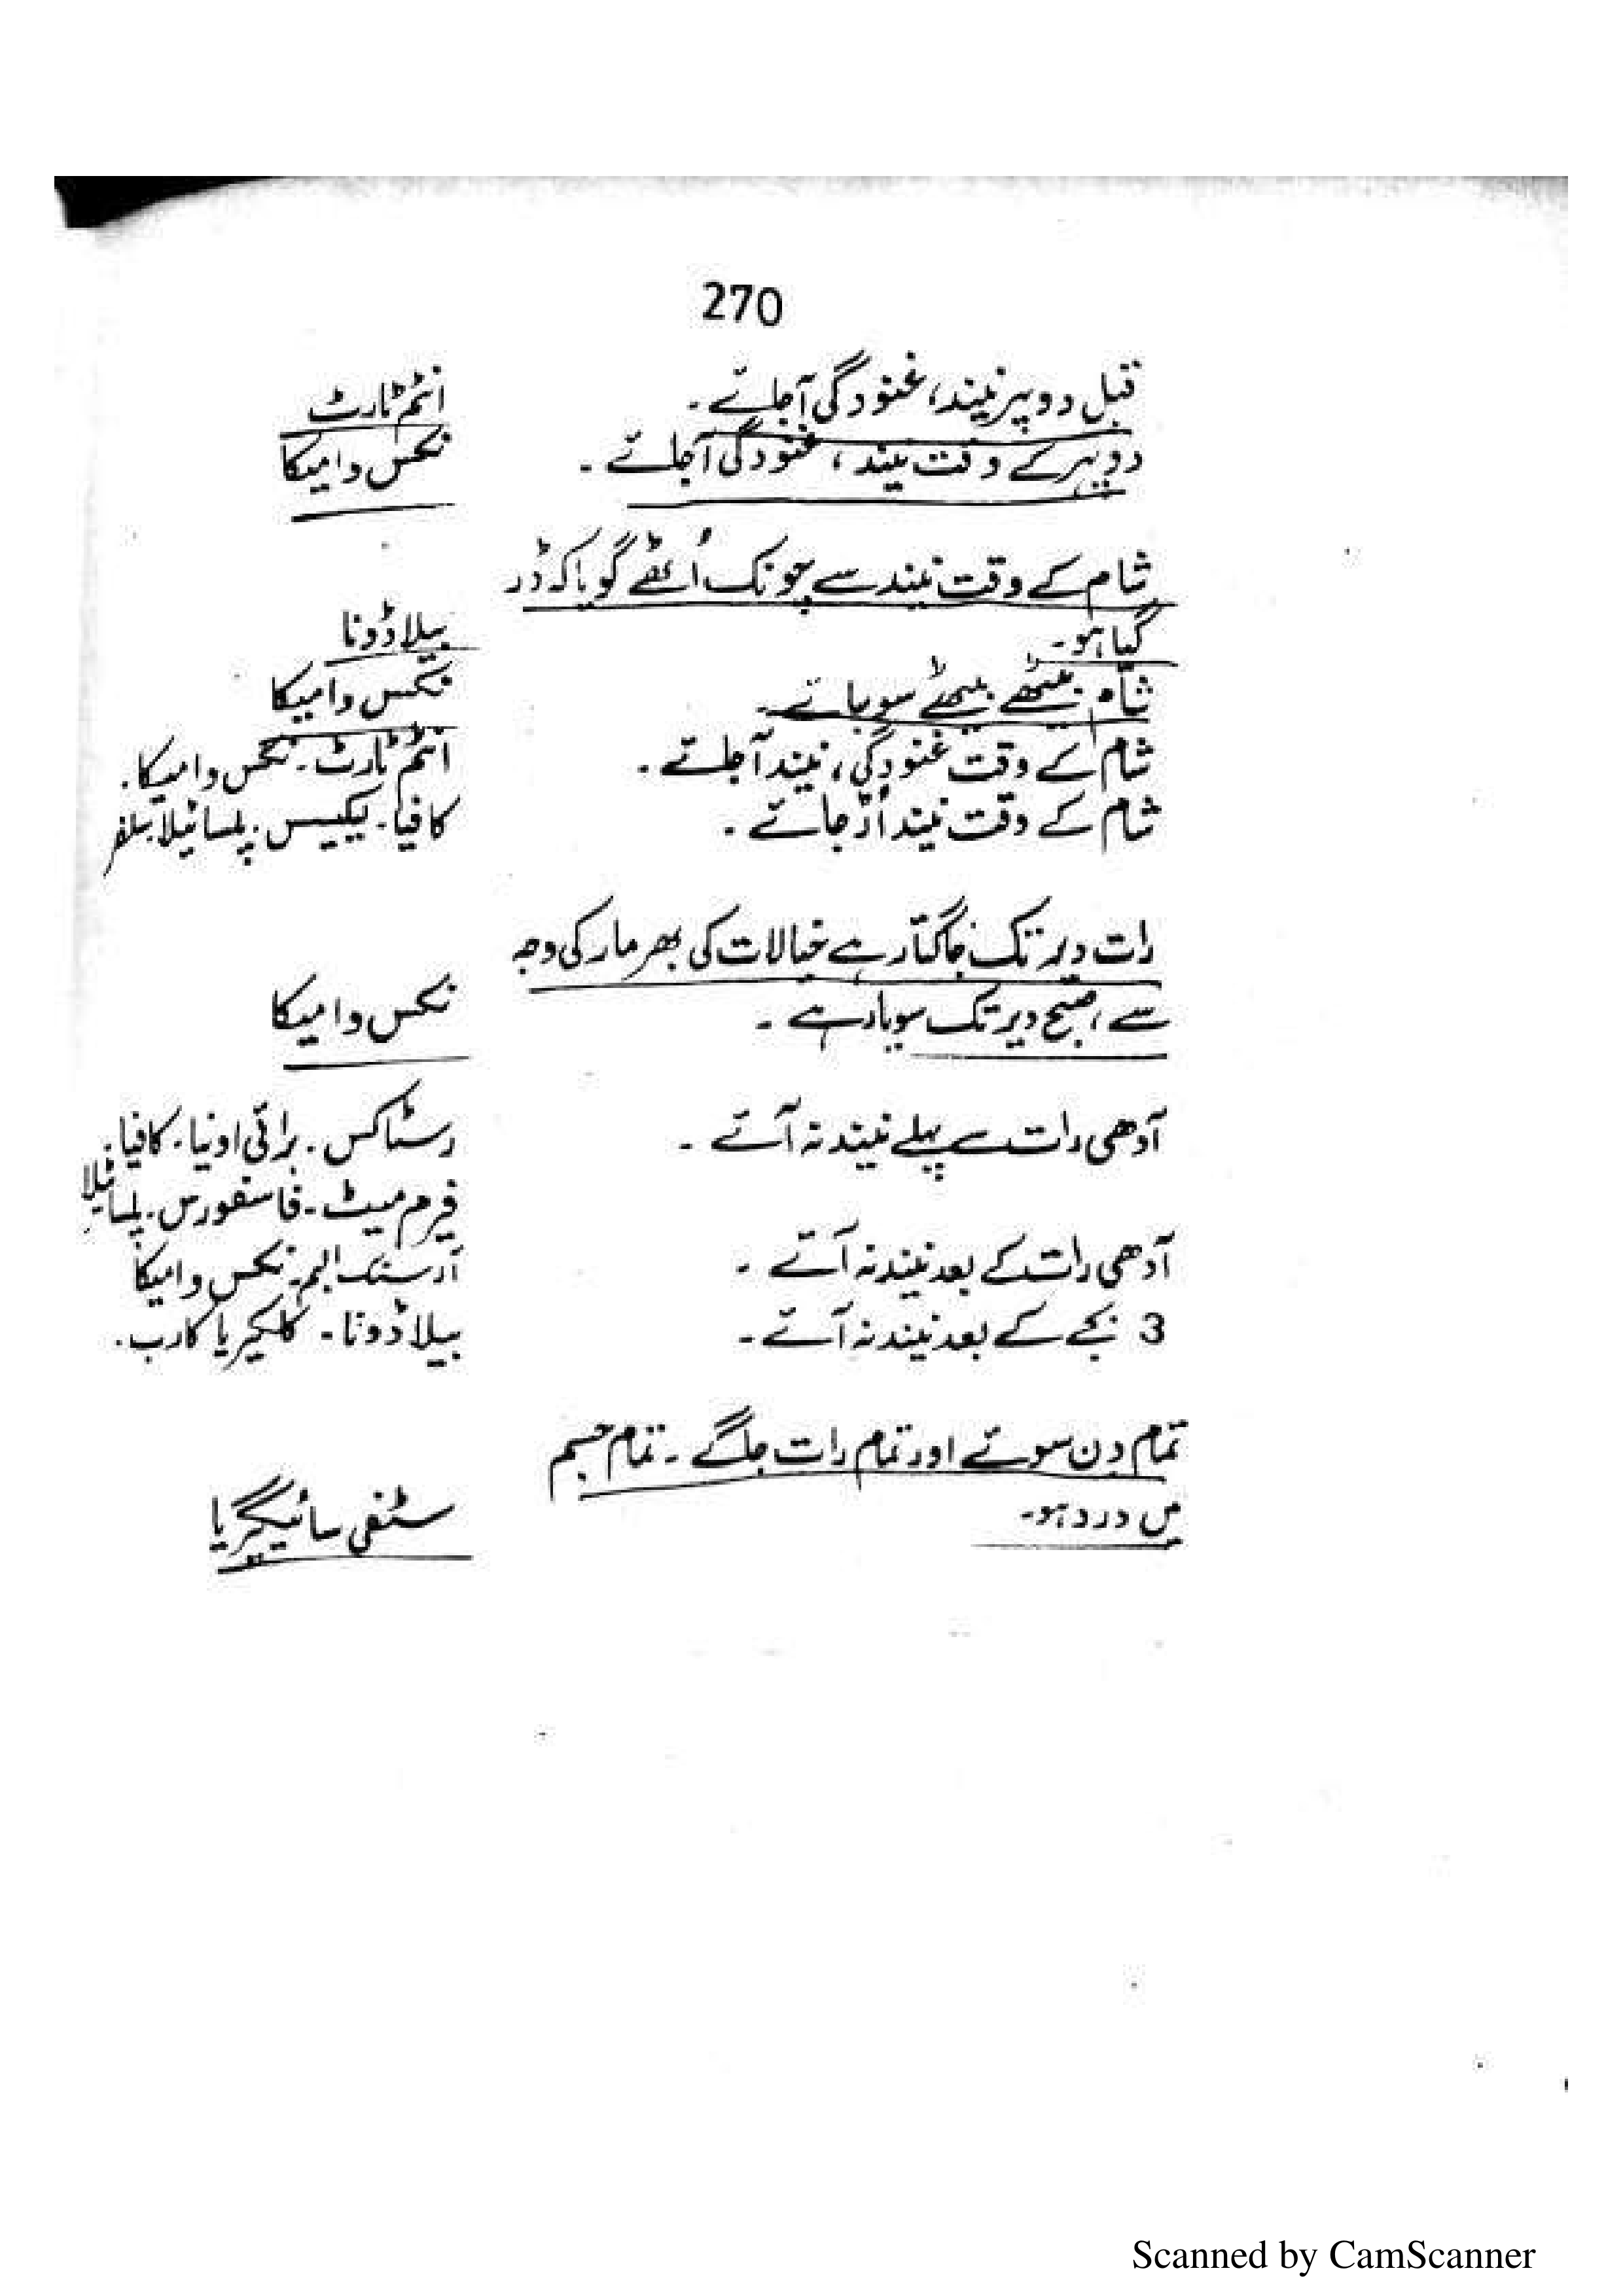 270
قبل دوپہر نیند، غنودگی آجائے۔ انٹم ٹارٹ
دوپہر کے وقت نیند، غنودگی آجائے۔ نکس وامیکا
شام کے وقت نیند سے چونک اُٹھے گویا کہ ڈر
گیا ہو۔ بیلاڈونا
شام بیٹھے بیٹھے سو جائے۔ نکس وامیکا
شام کے وقت غنودگی، نیند آجائے۔ انٹم ٹارٹ۔ نکس وامیکا۔
شام کے وقت نیند اُڑ جائے۔ کافیا۔ لیکیسس۔ پلساٹیلا سلفر
رات دیر تک جاگتا رہے خیالات کی بھرمار کی وجہ
سے، صبح دیر تک سویا رہے۔ نکس وامیکا
آدھی رات سے پہلے نیند نہ آئے۔ رسٹاکس۔ برائی اونیا۔ کافیا۔
فیرم میٹ۔ فاسفورس۔ پلساٹیلا
آدھی رات کے بعد نیند نہ آئے۔ آرسنک البم۔ نکس وامیکا
3 بجے کے بعد نیند نہ آئے۔ بیلاڈونا۔ کلکیریا کارب۔
تمام دن سوئے اور تمام رات جاگے۔ تمام جسم
میں درد ہو۔ سٹفی سائیگیریا
Scanned by CamScanner